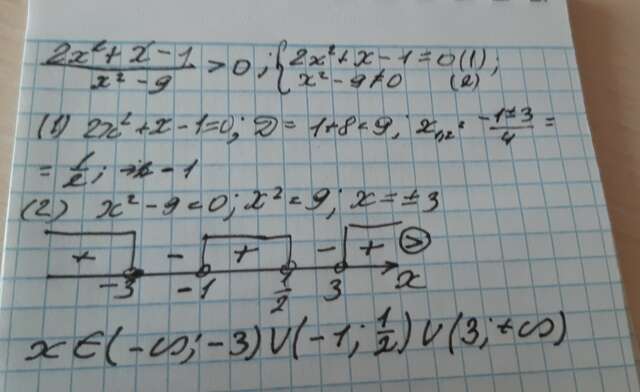 (2x²+x-1)/(x²-9) > 0; { 2x²+x-1=0 (1); x²-9≠0 (2)
(1) 2x²+x-1=0; D=1+8=9; x₁,₂=(-1±3)/4=
=1/2; -1
(2) x²-9=0; x²=9; x=±3
+ - + - + >
-3 -1 1/2 3 x
x∈(-∞;-3)∪(-1;1/2)∪(3;+∞)